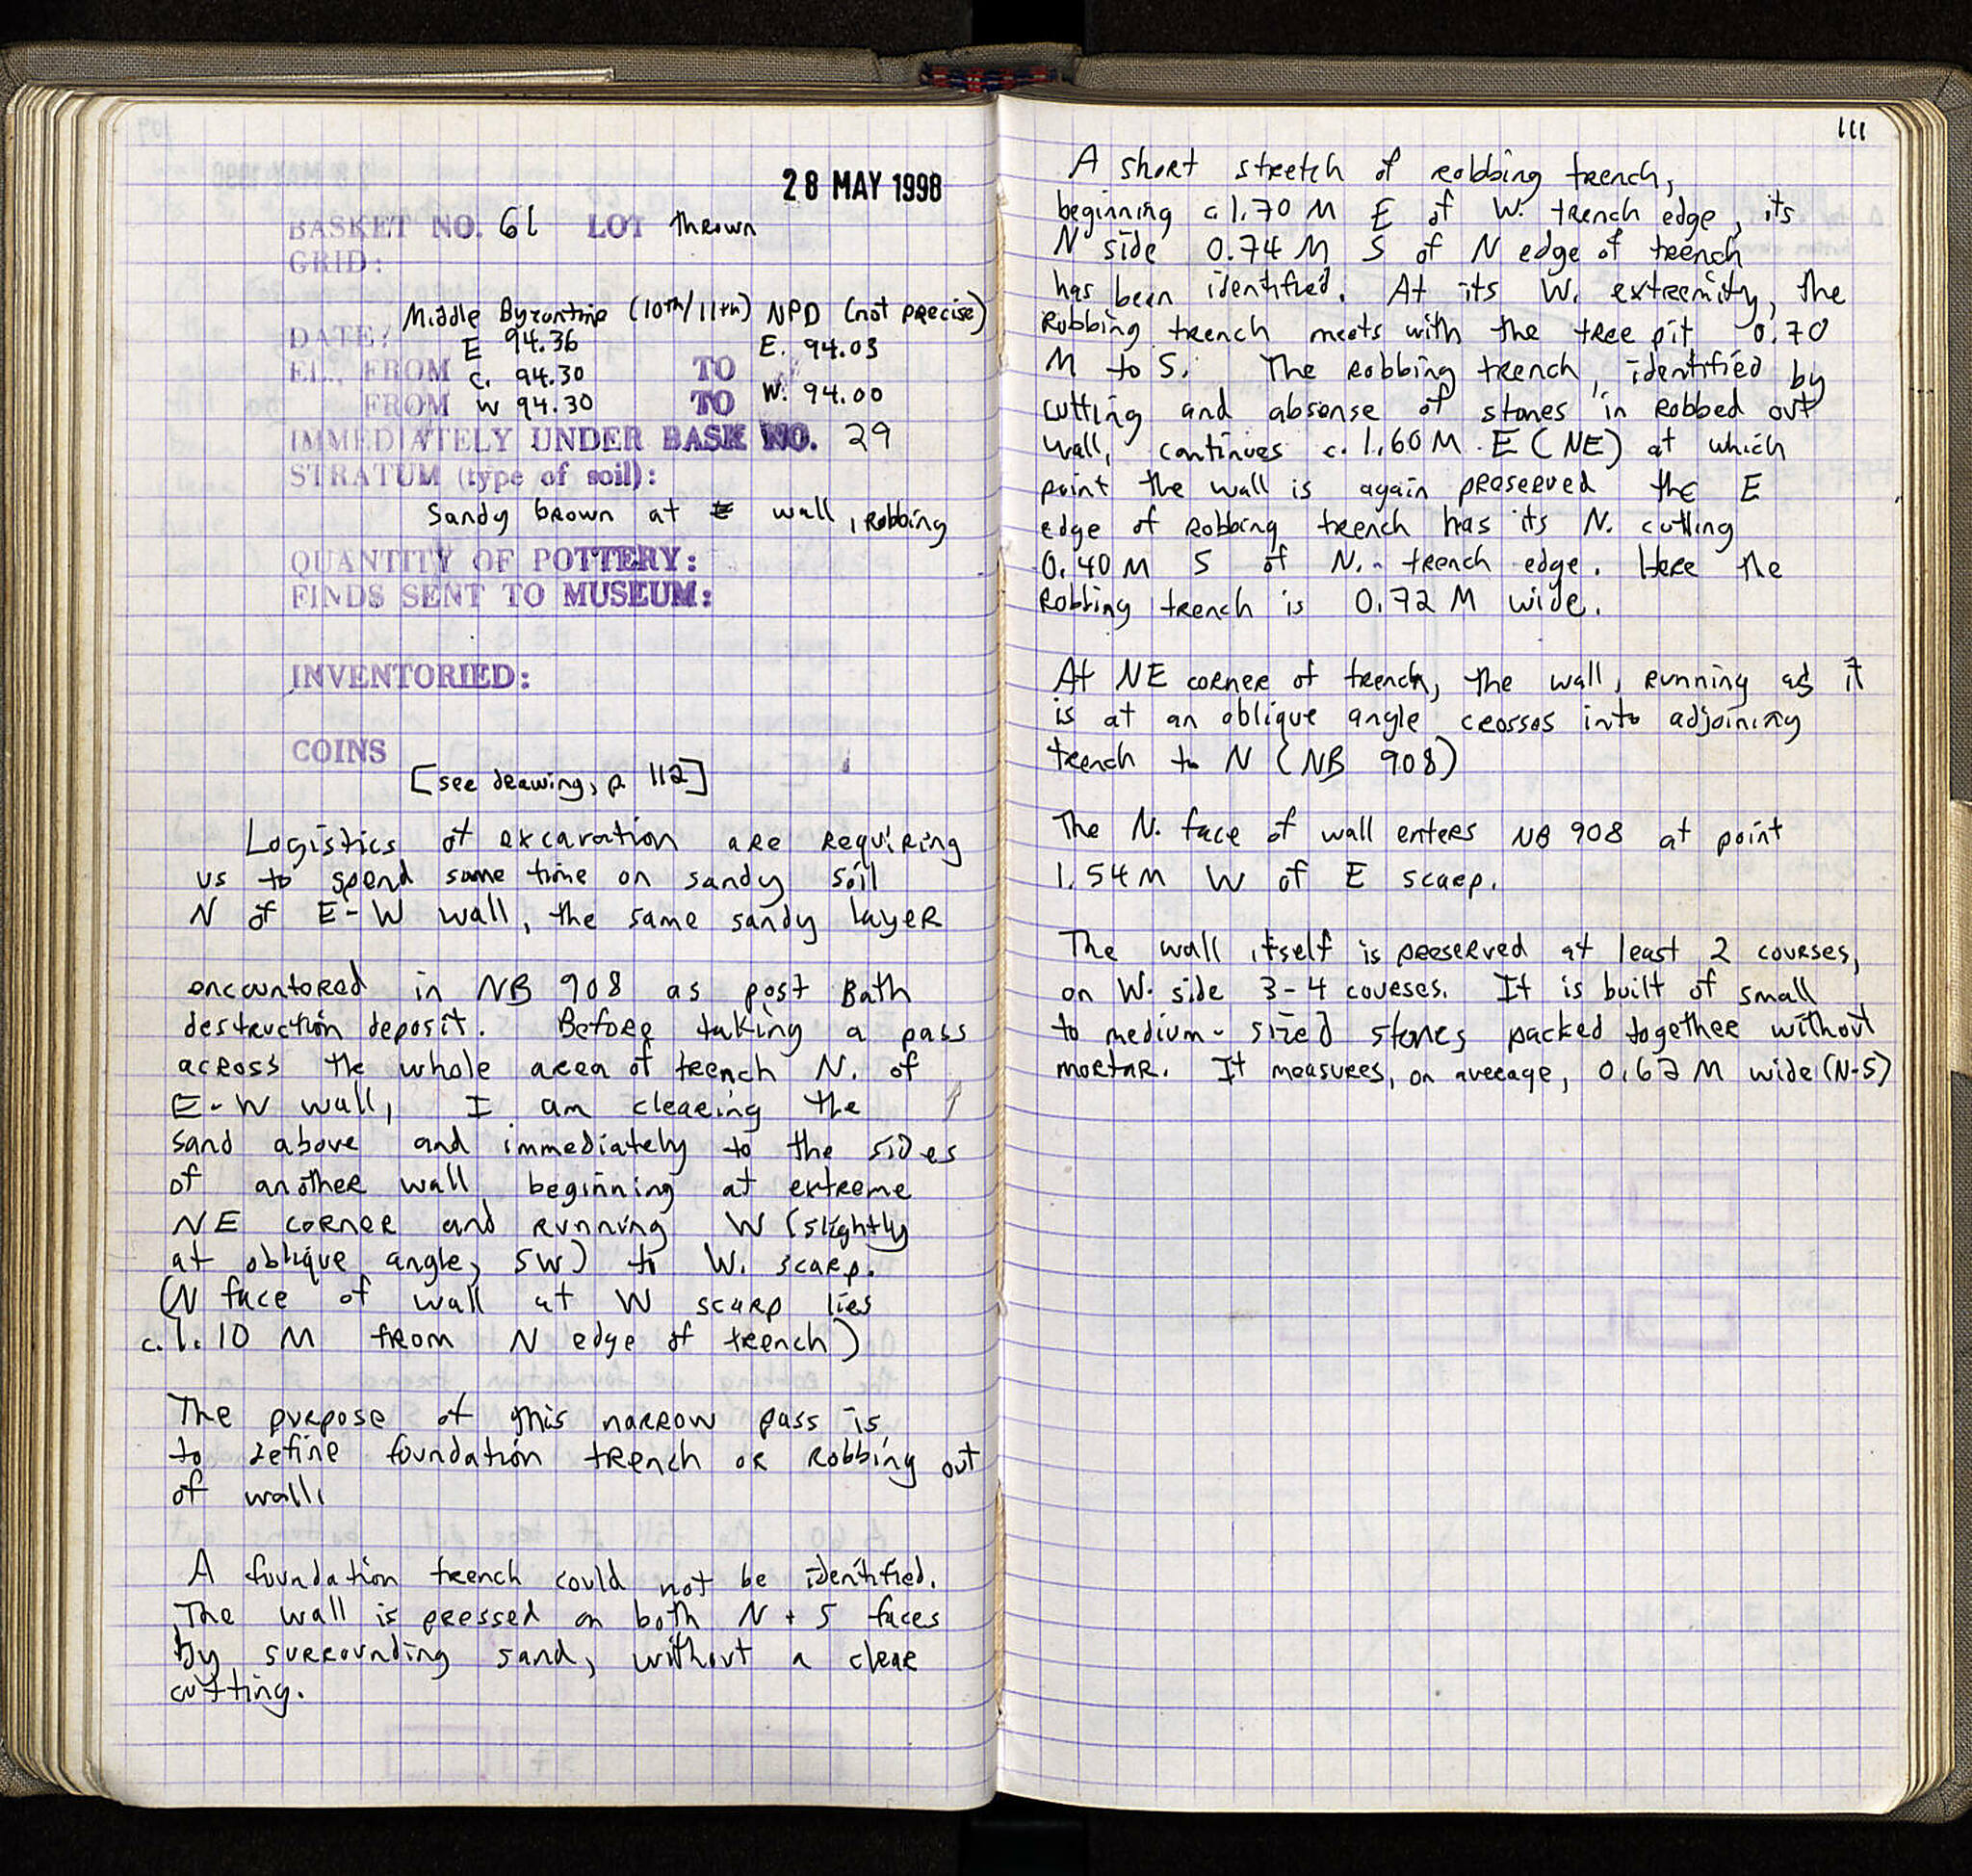 28 MAY 1998
BASKET NO. 61 LOT thrown
GRID:
Middle Byzantine (10th/11th) NPD (not precise)
DATE:
E 94.36 E. 94.03
EL., FROM c. 94.30 TO
FROM W 94.30 TO W. 94.00
IMMEDIATELY UNDER BASK NO. 29
STRATUM (type of soil):
Sandy brown at wall, robbing
QUANTITY OF POTTERY:
FINDS SENT TO MUSEUM:
INVENTORIED:
COINS
[see drawing, p. 112]
Logistics of excavation are requiring
us to spend some time on sandy soil
N of E-W wall, the same sandy layer
encountered in NB 908 as post Bath
destruction deposit. Before taking a pass
across the whole area of trench N. of
E-W wall, I am clearing the
sand above and immediately to the sides
of another wall, beginning at extreme
NE corner and running W (slightly
at oblique angle, SW) to W. scarp.
(N face of wall at W scarp lies
c. 1.10 M from N edge of trench)
The purpose of this narrow pass is
to define foundation trench or robbing out
of wall.
A foundation trench could not be identified.
The wall is pressed on both N + S faces
by surrounding sand, without a clear
cutting.
111
A short stretch of robbing trench,
beginning c 1.70 M E of W. trench edge, its
N side 0.74 M S of N edge of trench
has been identified. At its W. extremity, the
robbing trench meets with the tree pit 0.70
M to S. The robbing trench, identified by
cutting and absense of stones in robbed out
wall, continues c. 1.60 M E (NE) at which
point the wall is again preserved the E
edge of robbing trench has its N. cutting
0.40 M S of N. trench edge. Here the
robbing trench is 0.72 M wide.
At NE corner of trench, the wall, running as it
is at an oblique angle, crosses into adjoining
trench to N (NB 908)
The N. face of wall enters NB 908 at point
1.54 M W of E scarp.
The wall itself is preserved at least 2 courses,
on W. side 3-4 courses. It is built of small
to medium-sized stones packed together without
mortar. It measures, on average, 0.62 M wide (N-S)